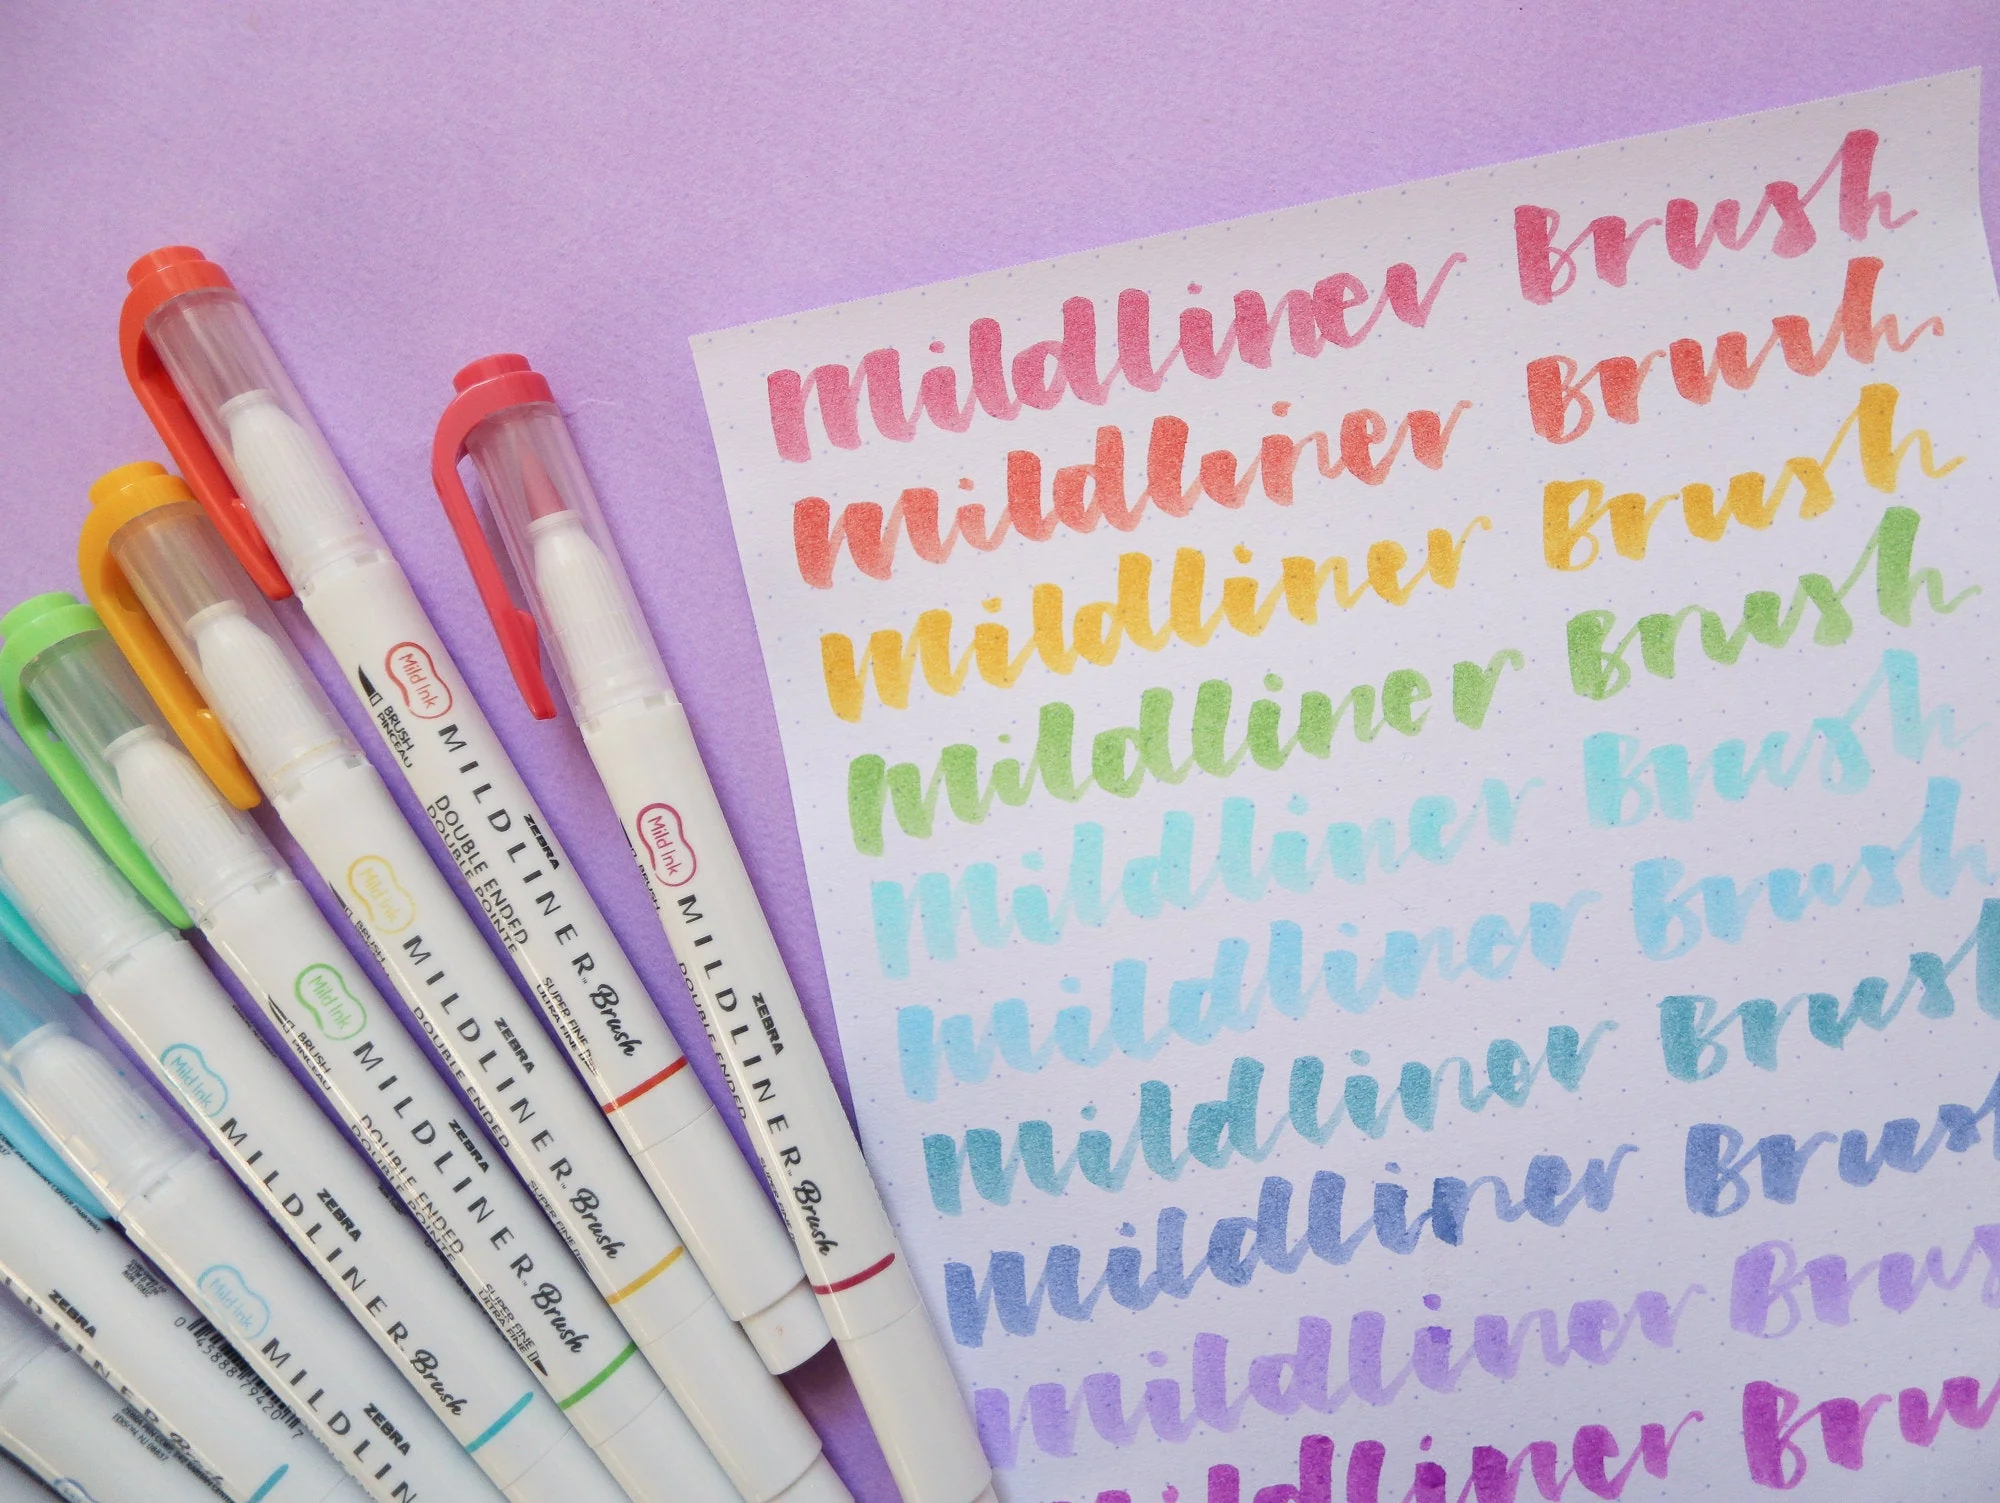 Mildliner Brush
Mildliner Brush
Mildliner Brush
Mildliner Brush
Mildliner Brush
Mildliner Brush
Mildliner Brush
Mildliner Brush
Mildliner Brus
Mildliner Bru
Mild Ink
BRUSH
PINCEAU
ZEBRA
MILDLINER™ Brush
DOUBLE ENDED
DOUBLE POINTE
SUPER FINE
ULTRA FINE
Mild Ink
ZEBRA
MILDLINER™ Brush
DOUBLE ENDED
Mild Ink
BRUSH
ZEBRA
MILDLINER™ Brush
DOUBLE ENDED
SUPER FINE
Mild Ink
BRUSH
PINCEAU
ZEBRA
MILDLINER™ Brush
DOUBLE ENDED
DOUBLE POINTE
SUPER FINE
ULTRA FINE
Mild Ink
ZEBRA
MILDLINER™ Brush
Mild Ink
ZEBRA
MILDLIN
ZEBRA
0 45888 79420 7